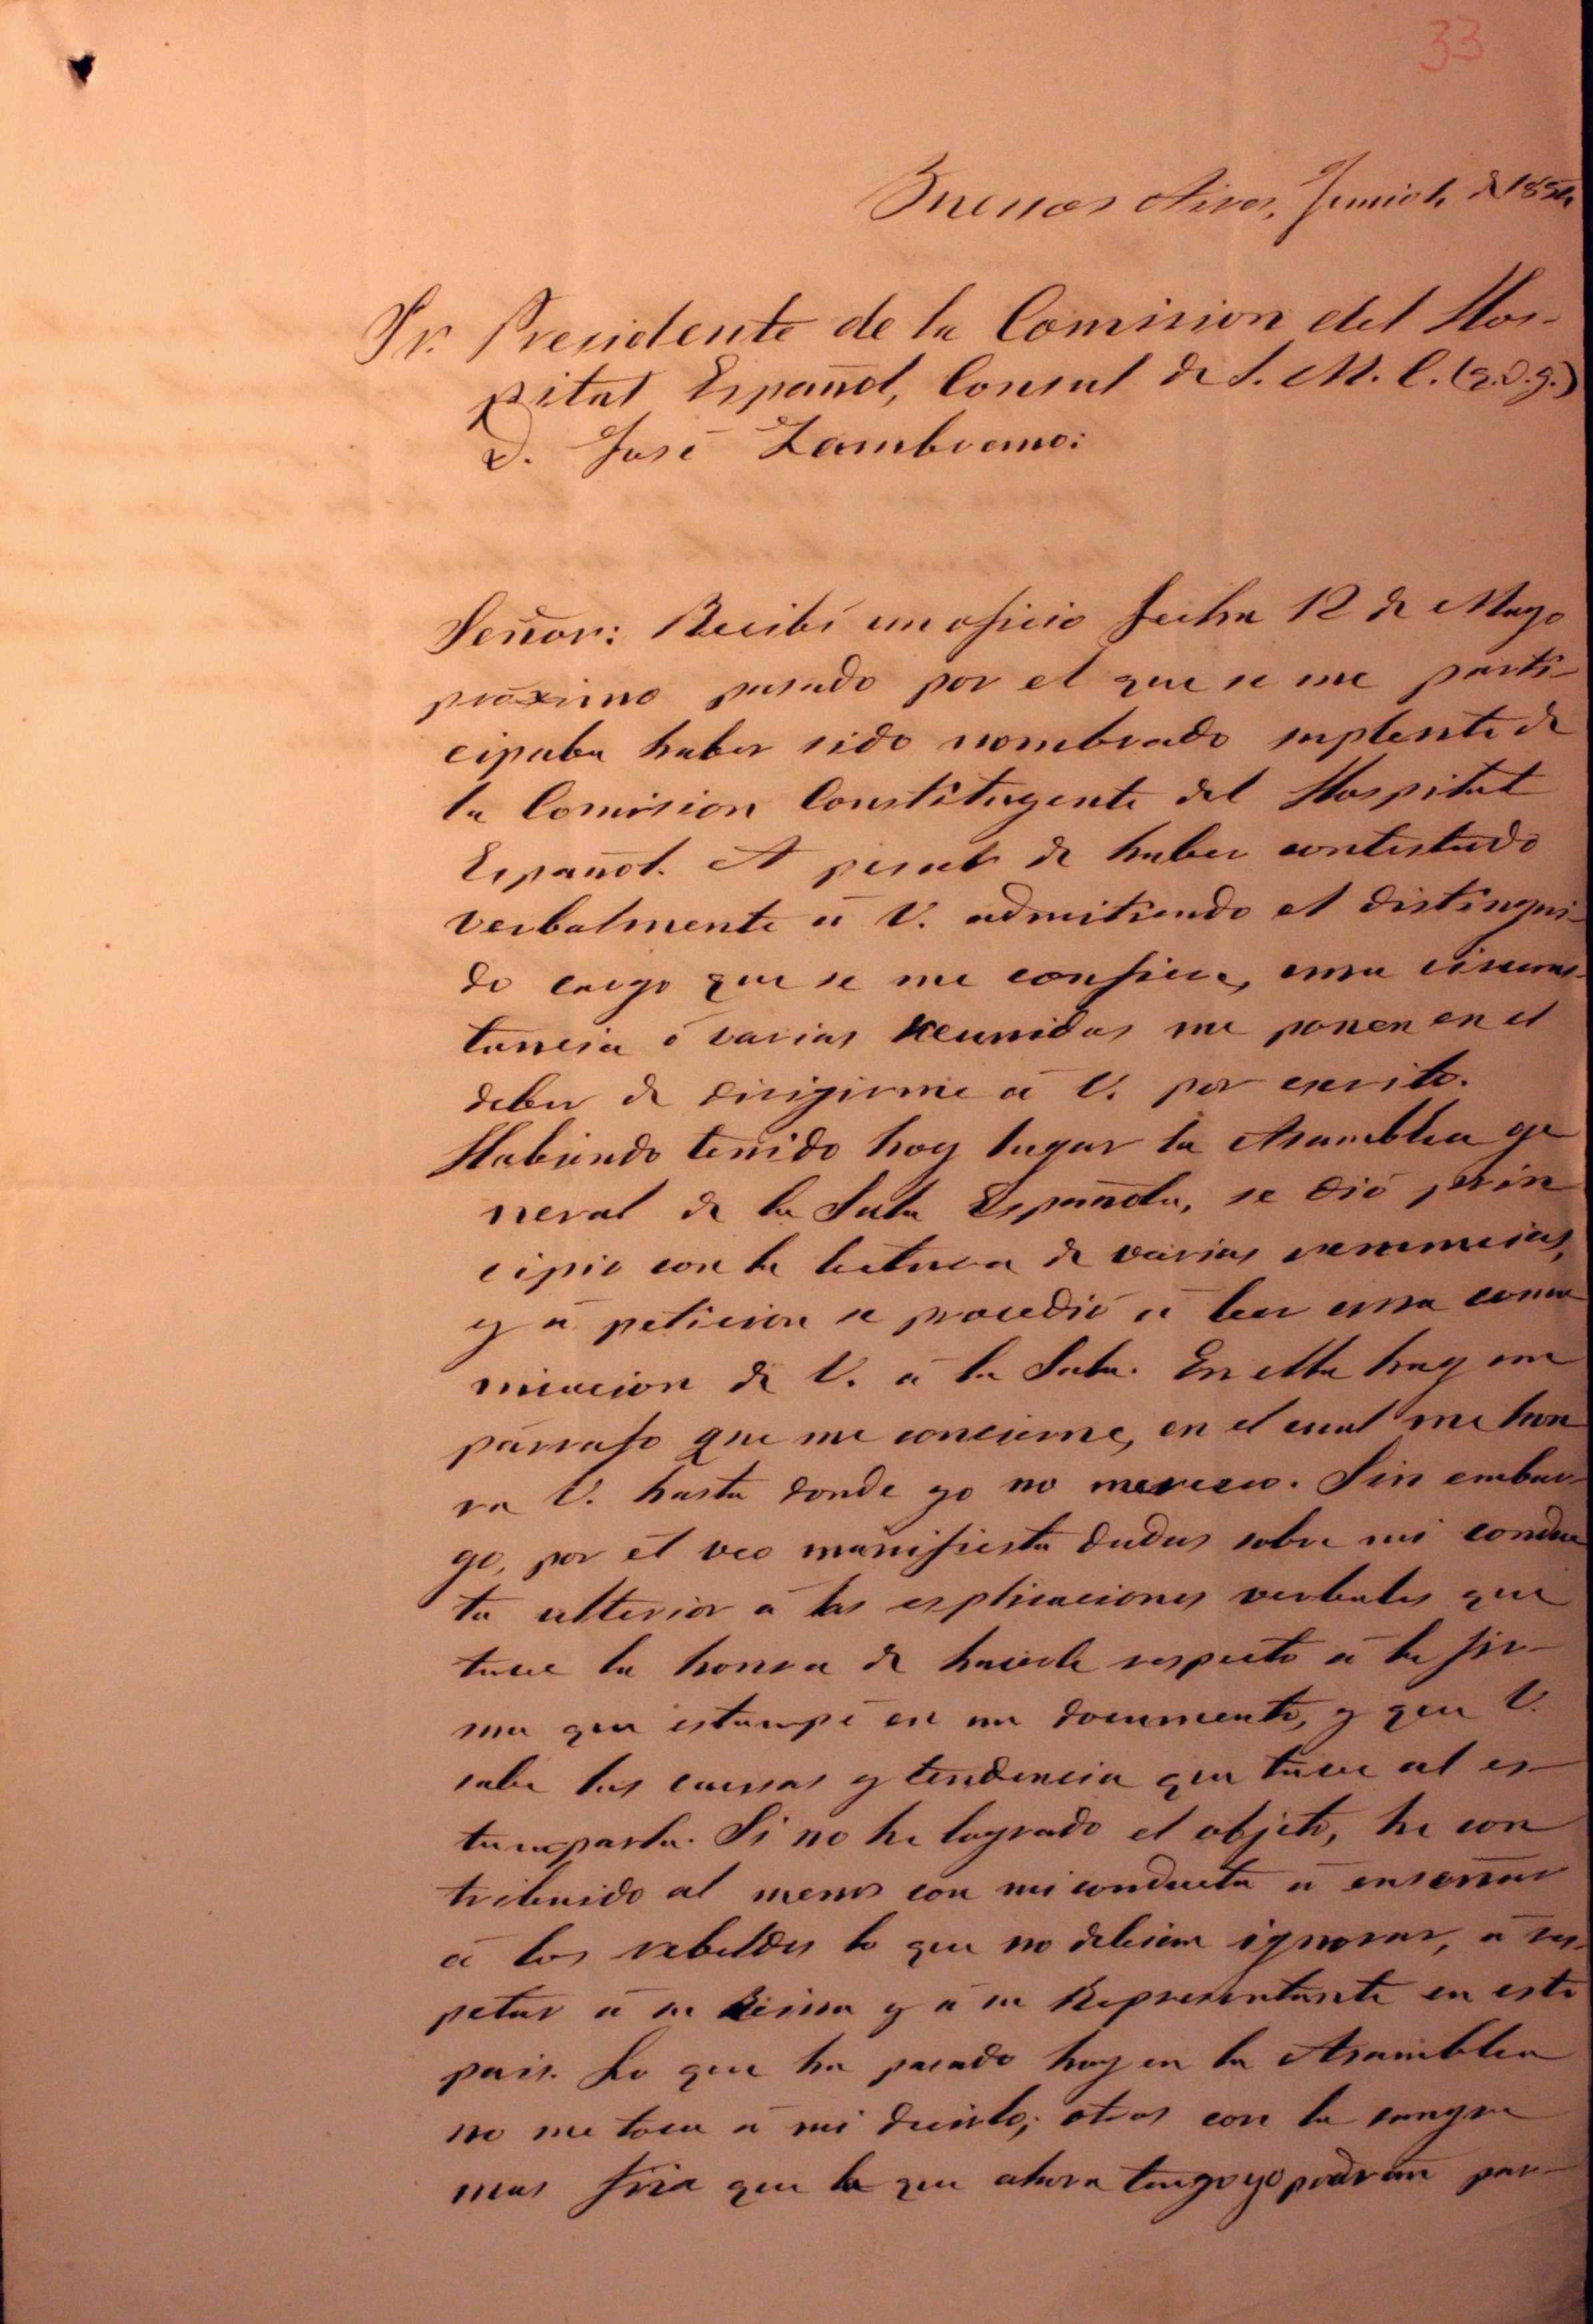 33
Buenos Aires, Junio 1. de 185
Sr. Presidente de la Comision del Hos-
pital Español, Consul de S. M. C. (q. D. g.)
D. José Zambrano:
Señor: Recibí un oficio fecha 12 de Mayo
próximo pasado por el que se me parti-
cipaba haber sido nombrado suplente de
la Comision Constituyente del Hospital
Español. A pesar de haber contestado
verbalmente á V. admitiendo el distingui-
do cargo que se me confiere, una circuns-
tancia ó varias reunidas me ponen en el
deber de dirigirme á V. por escrito.
Habiendo tenido hoy lugar la Asamblea ge
neral de la Sala Española, se dió prin
cipio con la lectura de varias renuncias,
y á peticion se procedió á leer una comu
nicacion de V. á la Sala. En ella hay un
párrafo que me concierne, en el cual me hon
ra V. hasta donde yo no merezco. Sin embar-
go, por él veo manifiesta dudas sobre mi conduc
ta ulterior á las esplicaciones verbales que
tuve la honra de hacerle respecto á la fir-
ma que estampé en un documento, y que V.
sabe las causas y tendencia que tuve al es-
tamparla. Si no he logrado el objeto, he con
tribuido al menos con mi conducta á enseñar
á los rebeldes lo que no debieran ignorar, á res-
petar á su Reina y á su Representante en este
pais. Lo que ha pasado hoy en la Asamblea
no me toca á mi decirlo; otros con la sangre
mas fria que la que ahora tengo yo podrán par-